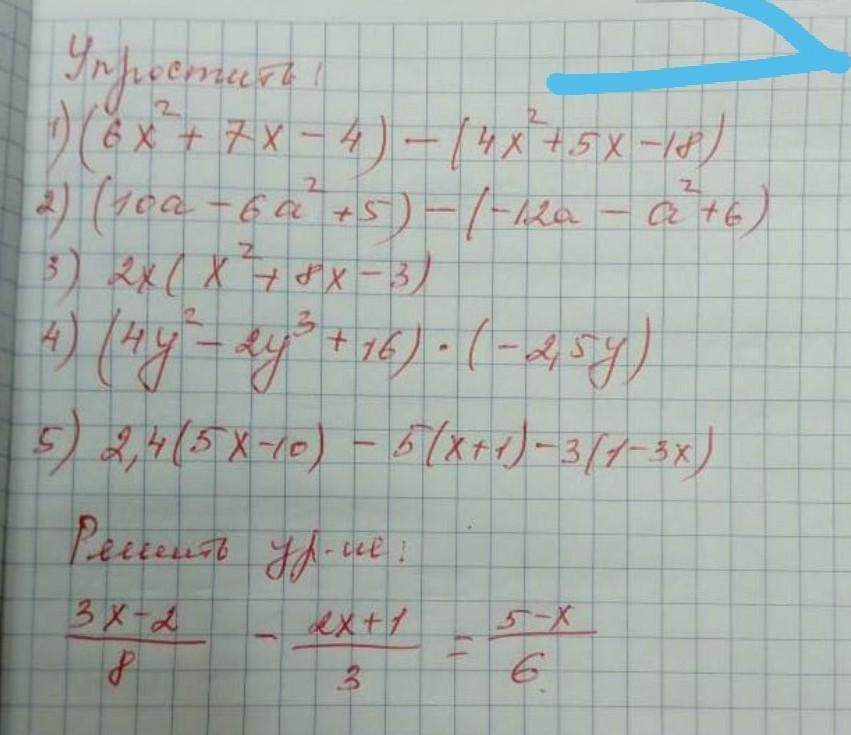 Упростить:
1) (6x² + 7x - 4) - (4x² + 5x - 18)
2) (10a - 6a² + 5) - (-12a - a² + 6)
3) 2x( x² + 8x - 3)
4) (4y² - 2y³ + 16) · (-2,5y)
5) 2,4(5x-10) - 5(x+1) - 3(1-3x)
Решить ур-ие:
(3x-2)/8 - (2x+1)/3 = (5-x)/6